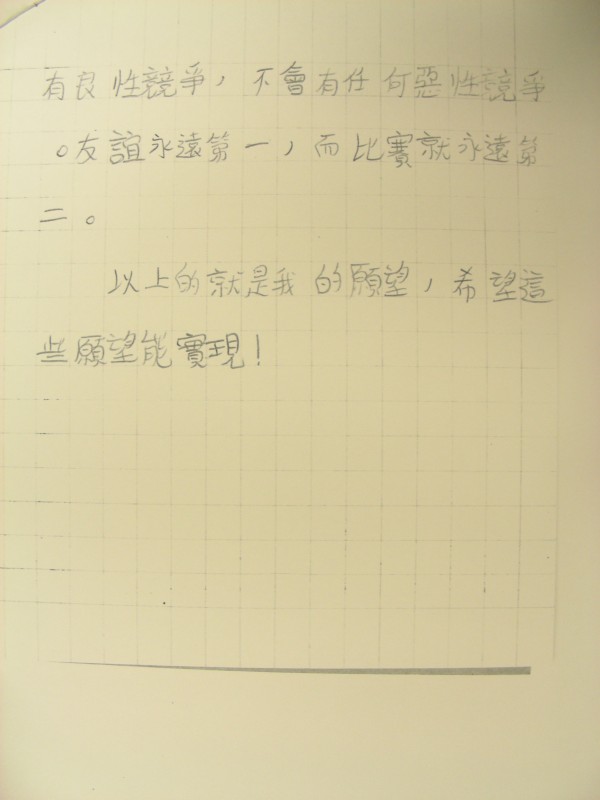 有良性競爭，不會有任何惡性競爭
。友誼永遠第一，而比賽就永遠第
二。
以上的就是我的願望，希望這
些願望能實現！